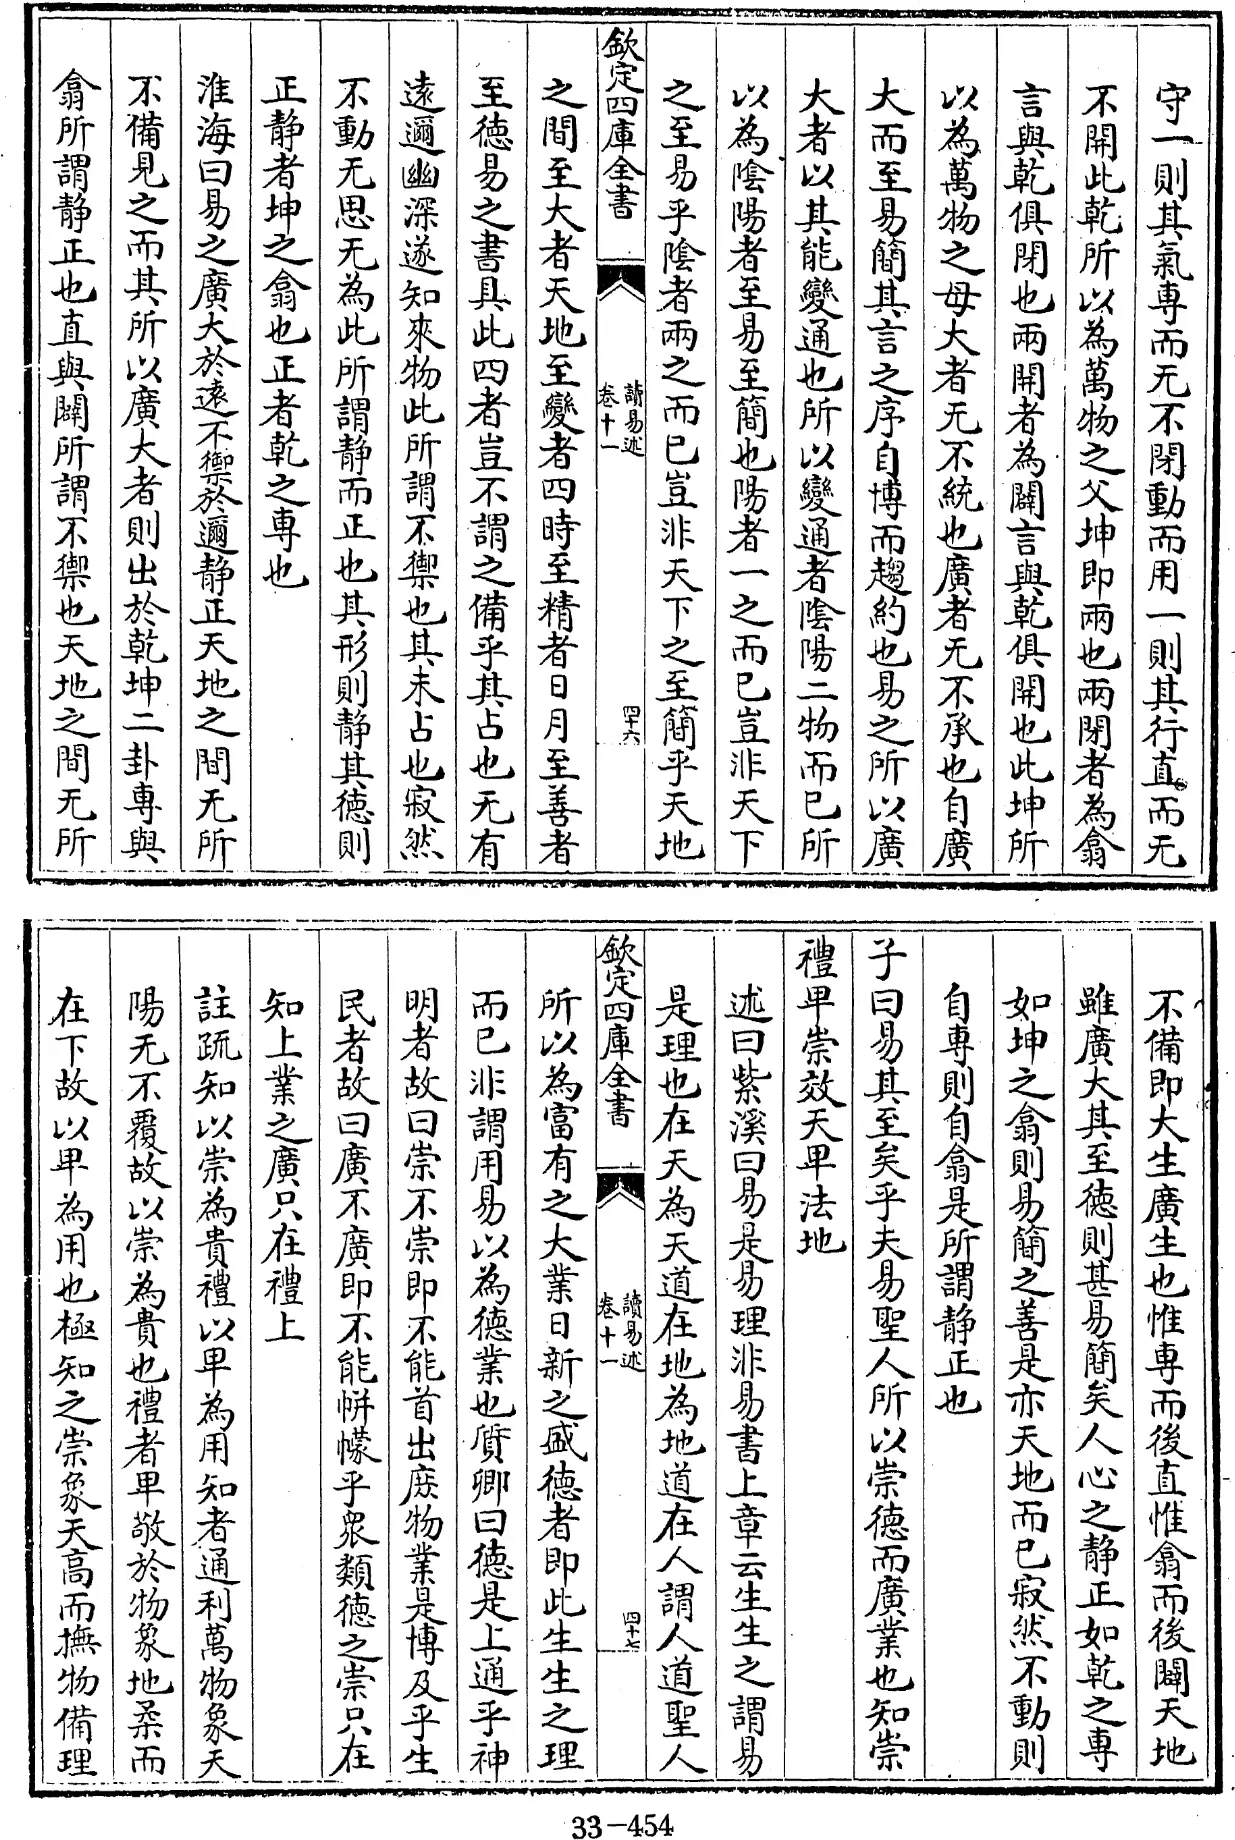 守一則其氣專而无不閉動而用一則其行直而无
不開此乾所以為萬物之父坤即兩也兩閉者為翕
言與乾俱閉也兩開者為闢言與乾俱開也此坤所
以為萬物之母大者无不統也廣者无不承也自廣
大而至易簡其言之序自博而趨約也易之所以廣
大者以其能變通也所以變通者陰陽二物而已所
以為陰陽者至易至簡也陽者一之而已豈非天下
之至易乎陰者兩之而已豈非天下之至簡乎天地
欽定四庫全書
讀易述
卷十一
四十六
之間至大者天地至變者四時至精者日月至善者
至德易之書具此四者豈不謂之備乎其占也无有
遠邇幽深遂知來物此所謂不禦也其未占也寂然
不動无思无為此所謂静而正也其形則静其德則
正静者坤之翕也正者乾之專也
淮海曰易之廣大於遠不禦於邇静正天地之間无所
不備見之而其所以廣大者則出於乾坤二卦專與
翕所謂静正也直與闢所謂不禦也天地之間无所
不備即大生廣生也惟專而後直惟翕而後闢天地
雖廣大其至德則甚易簡矣人心之静正如乾之專
如坤之翕則易簡之善是亦天地而已寂然不動則
自專則自翕是所謂静正也
子曰易其至矣乎夫易聖人所以崇德而廣業也知崇
禮卑崇效天卑法地
述曰紫溪曰易是易理非易書上章云生生之謂易
是理也在天為天道在地為地道在人謂人道聖人
欽定四庫全書
讀易述
卷十一
四十七
所以為富有之大業日新之盛德者即此生生之理
而已非謂用易以為德業也質卿曰德是上通乎神
明者故曰崇不崇即不能首出庶物業是博及乎生
民者故曰廣不廣即不能帡幪乎衆類德之崇只在
知上業之廣只在禮上
註疏知以崇為貴禮以卑為用知者通利萬物象天
陽无不覆故以崇為貴也禮者卑敬於物象地柔而
在下故以卑為用也極知之崇象天高而撫物備理
33-454